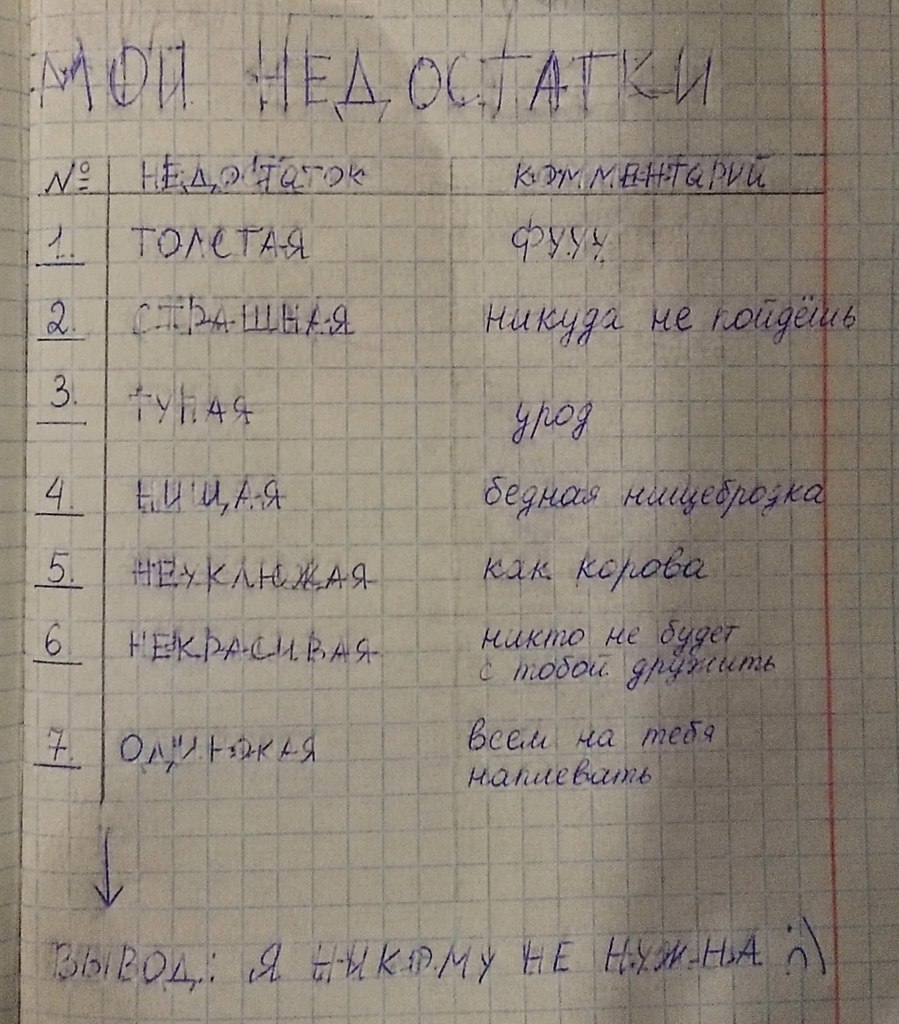 МОИ НЕДОСТАТКИ
№ НЕДОСТАТОК КОММЕНТАРИЙ
1. ТОЛСТАЯ ФУУУ
2. СТРАШНАЯ никуда не пойдёшь
3. ТУПАЯ урод
4. НИЩАЯ бедная нищебродка
5. НЕУКЛЮЖАЯ как корова
6 НЕКРАСИВАЯ никто не будет
с тобой дружить
7. ОДИНОКАЯ всем на тебя
наплевать
ВЫВОД: Я НИКОМУ НЕ НУЖНА :)